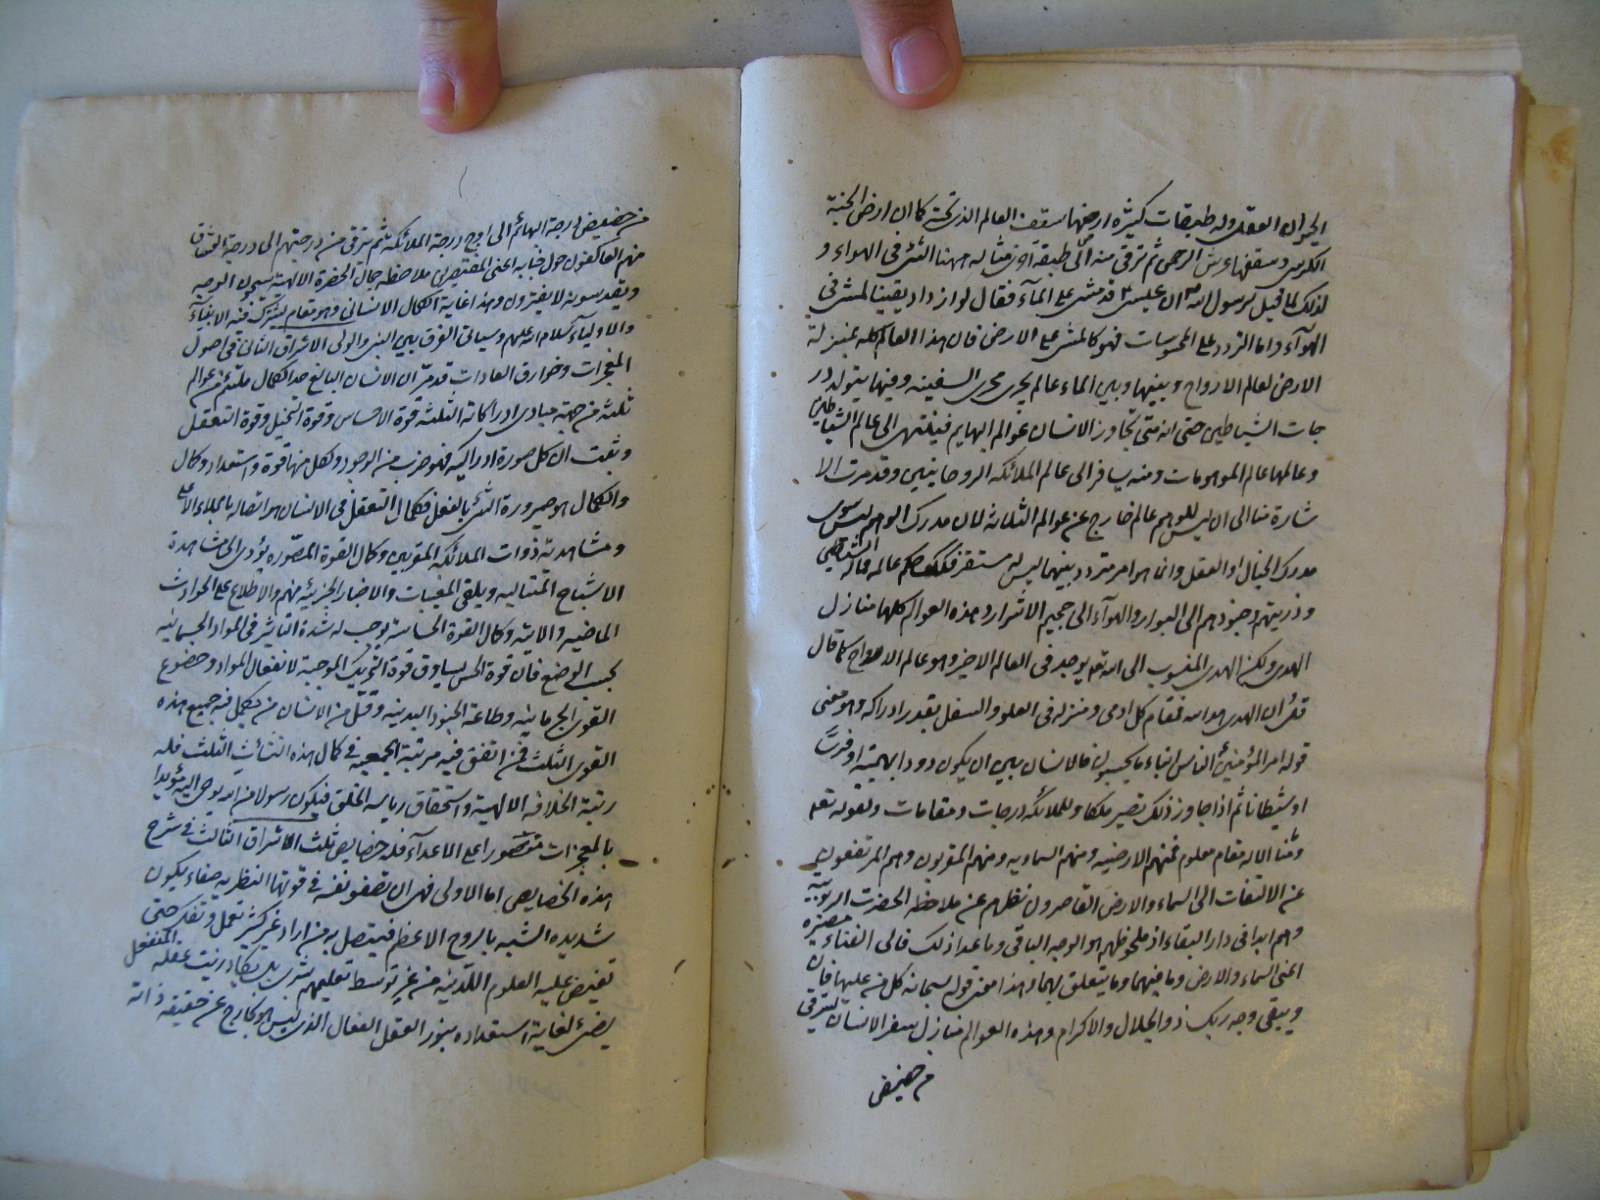 الحيوان العقلى وله طبقات كثيره ارضها سقف العالم الذى تحته كما ان ارض الجنة
الكرسى وسقفها عرش الرحمن ثم ترقى منه الى طبقة اخرى مثاله ههنا المشى فى الهواء و
لذلك لما قيل لرسول الله ص ان عيسى ع قد مشى على المآء فقال لو ازداد يقينا لمشى فى
الهوآء واما التردد على المحسوسات فهو كالمشى على الارض فان هذا العالم كله بمنزلة
الارض لعالم الارواح وبينها وبين الماء عالم يجرى مجرى السفينه وفيها يتولد در
جات الشياطين حتى انه متى تجاوز الانسان عوالم البهايم فينتهى الى عالم الشياطين
وعالمها عالم الموهومات ومنه يسافر الى عالم الملائكه الروحانيين وقد مرت الا
شارة منا الى ان ليس للوهم عالم خارج عن عوالم الثلاثة لان مدرك الوهم ليس سوى
مدرك الخيال او العقل وانما هو امر متردد بينهما ليس له مستقر فكك حكم عالمه فان الشياطين
وذريتهم وجنودهم الى البوار والهوآء الى جحيم الاشرار وهذه العوالم كلها منازل
الهدى ولكن الهدى المنسوب الى الله تعم يوجد فى العالم الاخير وهو عالم الارواح كما قال
تعم ان الهدى هدى الله فمقام كل ادمى ومنزله فى العلو والسفل بقدر ادراكه وهو معنى
قوله امير المؤمنين ع الناس ابناء ما يحسنون فالانسان بين ان يكون دودا بهيمة او فرسا
او شيطانا ثم اذا جاوز ذلك يصير ملكا وللملائكه درجات ومقامات ولقوله تعم
ومنا الا له مقام معلوم فمنهم الارضيه ومنهم السماويه ومنهم المقربون وهم المرتفعون
عن الالتفات الى السماء والارض القاصرون نظرهم عن ملاحظه الحضرت الربوبيه
وهم ابدا فى دار البقاء اذ ملحوظهم هو الوجه الباقى وما عدا ذلك فالى الفناء مصيره
اعنى السماء والارض وما فيهما وما يتعلق بهما وهذا معنى قوله سبحانه كل من عليها فان
ويبقى وجه ربك ذو الجلال والاكرام وهذه العوالم منازل سفر الانسان ليترقى
من حضيض
من حضيض درجة البهائم الى اوج درجة الملائكة ثم يترقى من درجتهم الى درجة العشاق
منهم العاكفون حول جنابه اعنى المقتصرين على ملاحظه جمال الحضرة الالهيه يسبحون الوجه
ويقدسونه لا يفترون وهذا غاية الكمال الانسانى وهو مقام يشترك فيه الانبيآء
والاوليآء سلام الله عليهم وسياتى الفرق بين النبى والولى الاشراق الثانى فى اصول
المعجزات وخوارق العادات قد مر ان الانسان البالغ حد الكمال ملتئم من عوالم
ثلثه من جهة مبادى ادراكاته الثلثه قوة الاحساس وقوة التخيل وقوة التعقل
وثبت ان كل صورة ادراكيه فهو ضرب من الوجود ولكل منها قوة واستعداد وكمال
والكمال هو صيرورة الشئ بالفعل فكمال التعقل فى الانسان هو اتصاله بالملاء الاعلى
ومشاهدته ذوات الملائكه المقربين وكمال القوة المصوره يؤدى الى مشاهدة
الاشباح المثاليه ويلقى المغيبات والاخبار الجزئيه منهم والاطلاع على الحوادث
الماضيه والاتيه وكمال القوة الحساسه يوجب له شدة التاثير فى المواد الجسمانيه
بحسب الوضع فان قوة الحس يساوق قوة التحريك الموجبة لانفعال المواد وخضوع
القوى الجرمانيه وطاعة الجنود البدنيه وقل من الانسان من يكمل فيه جميع هذه
القوى الثلث فمن اتفق فيه مرتبة الجمعيه فى كمال هذه النشآت الثلث فله
رتبة الخلافه الالهية واستحقاق رياسه الخلق فيكون رسولا من الله يوحى اليه مؤيدا
بالمعجزات منصورا على الاعدآء فله خصايص ثلث الاشراق الثالث فى شرح
هذه الخصايص اما الاولى فهى ان تصفو نفسه فى قوتها النظريه صفاء يكون
شديده الشبه بالروح الاعظم فيتصل به من اراد غير كثير تعمل وتفكر حتى
تفيض عليه العلوم اللدنيه من غير توسط تعليم بشرى بل يكاد زيت عقله المنفعل
يضئ لغاية استعداده بنور العقل الفعال الذى ليس هو بخارج عن حقيقة ذاته